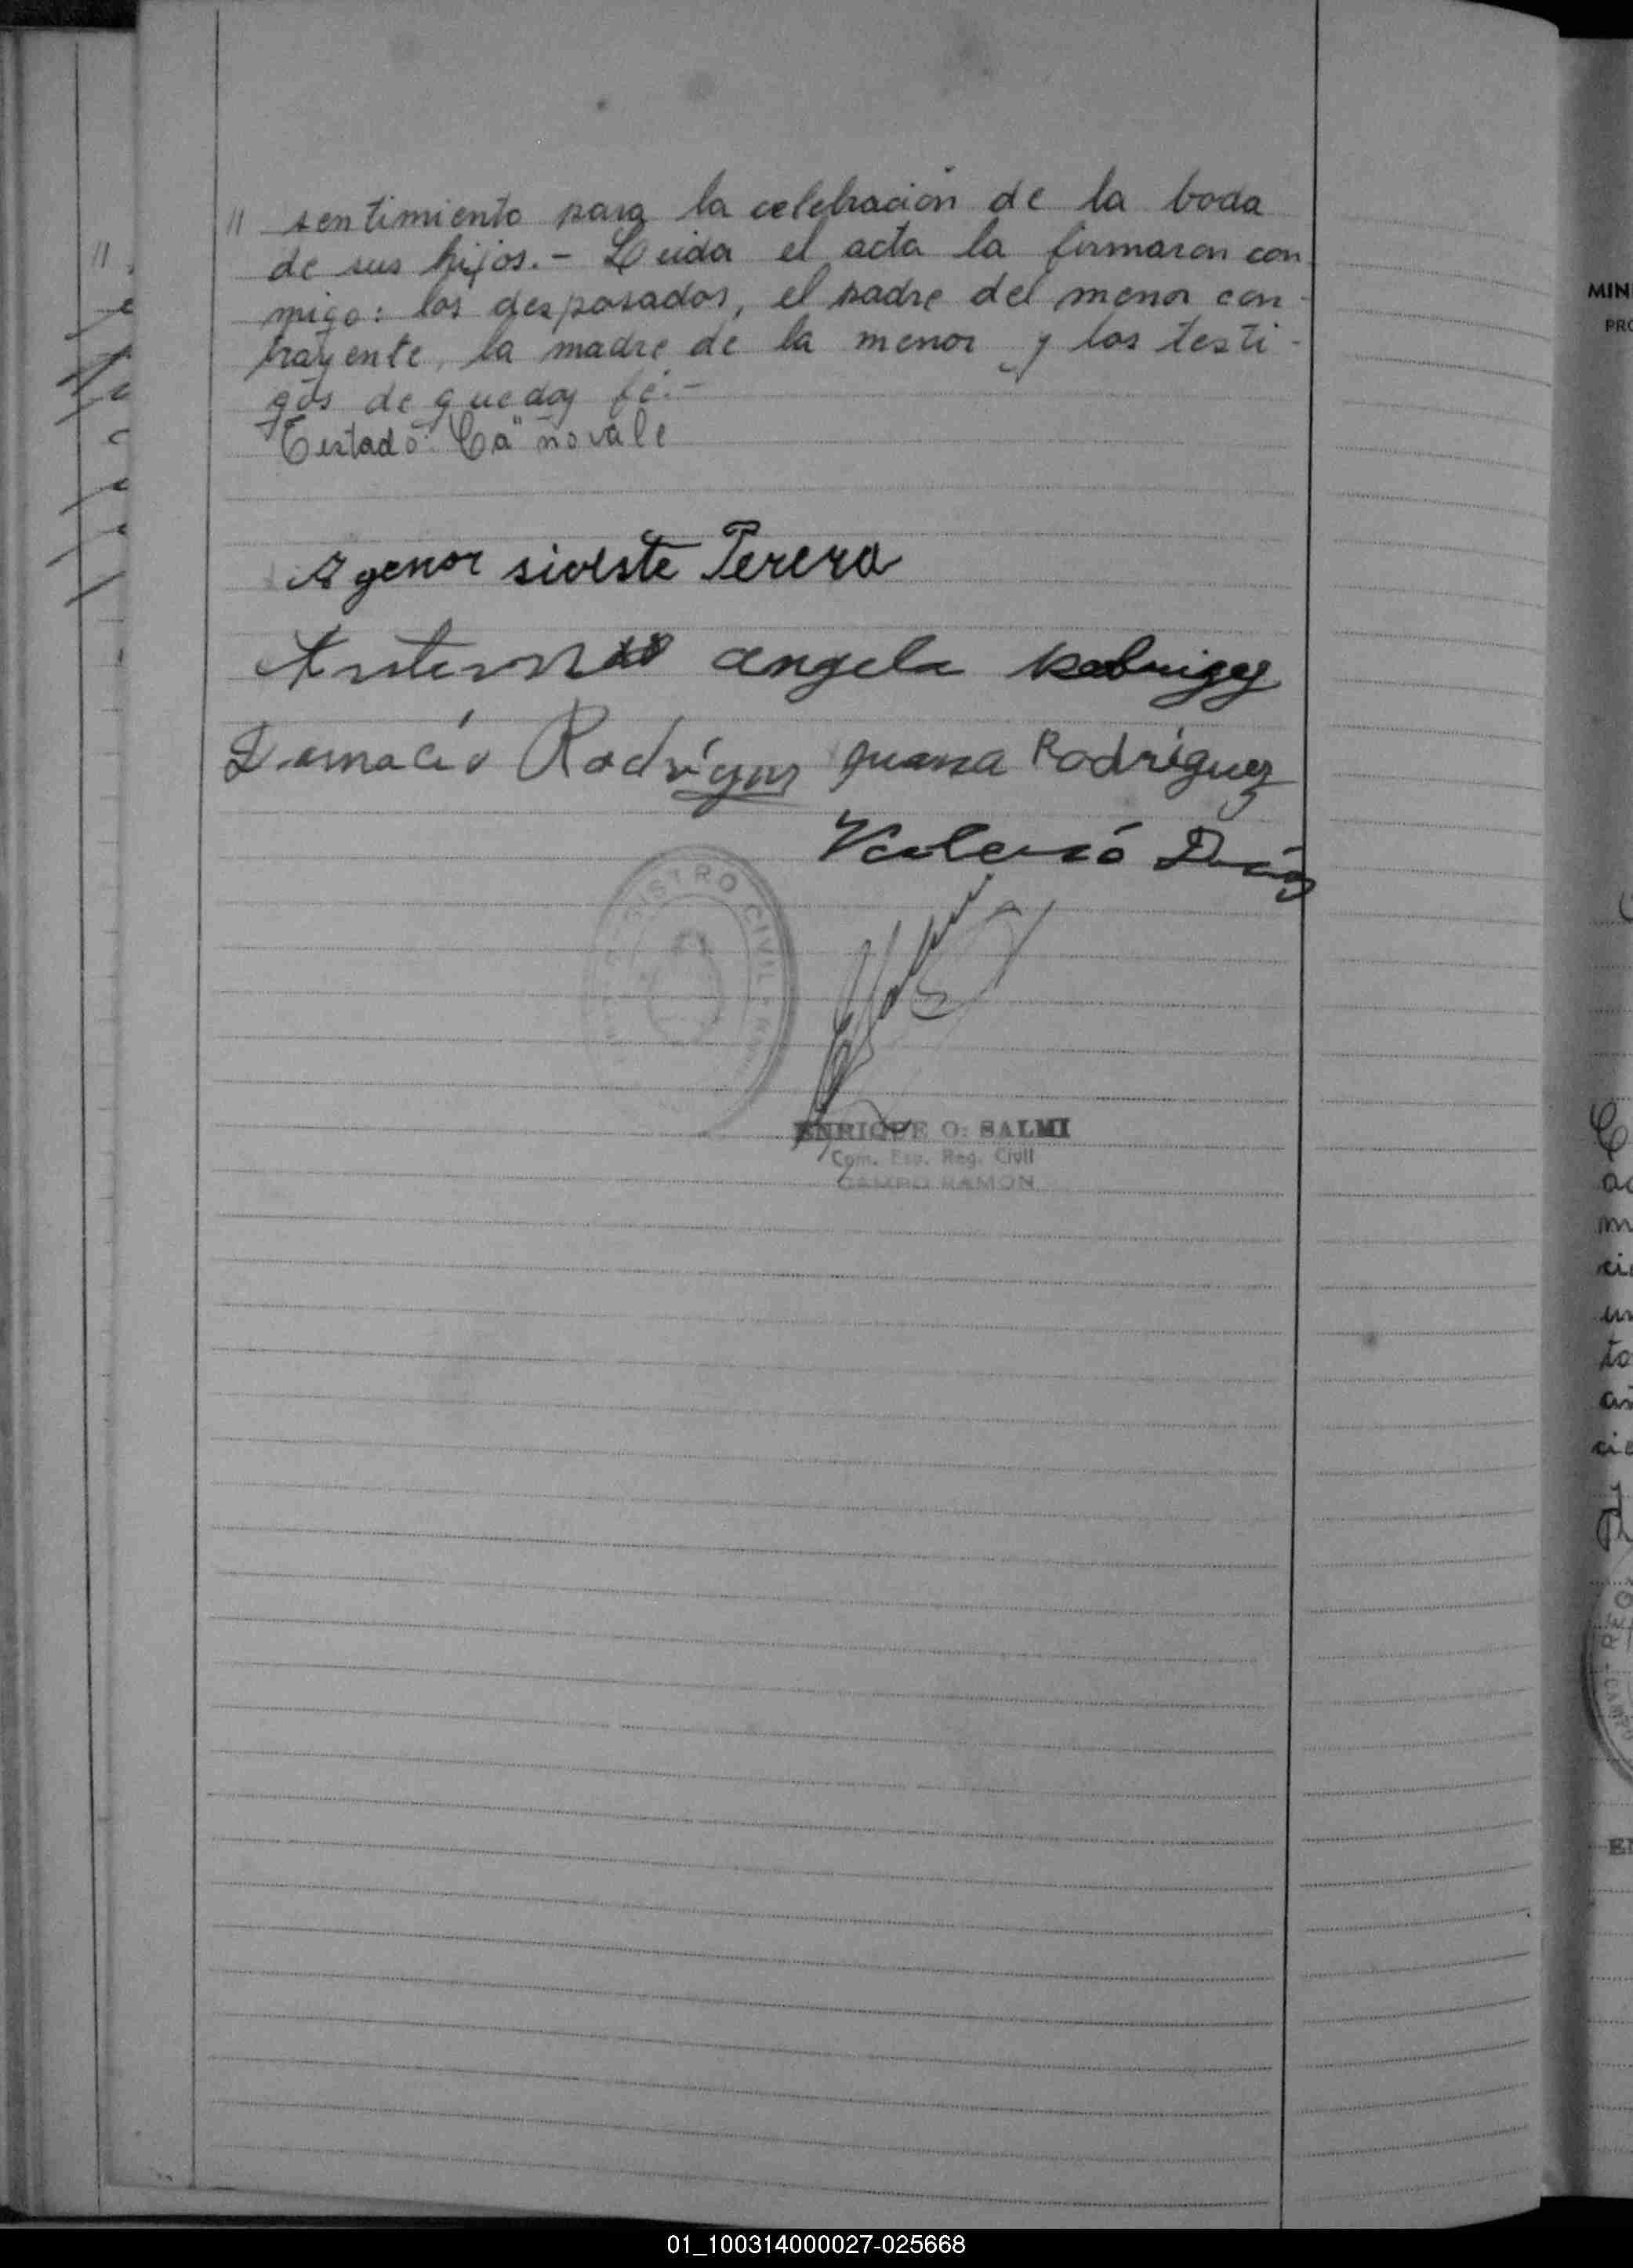 // sentimiento para la celebración de la boda
de sus hijos.- Leida el acta la firmaron con
migo: los desposados, el padre del menor con-
trayente, la madre de la menor y los testi-
gos de que doy fé.-
Testado: "Ca" no vale
Agenor siveste Perera
angela
Rodrigues Juana Rodríguez
Valerio Díaz
REGISTRO CIVIL
ENRIQUE O. SALMI
Com. Esp. Reg. Civil
CAMPO RAMON
MIN
PRO
01_100314000027-025668